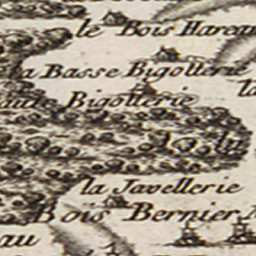 le Bois Harcau
la Basse Bigotterie
aute Bigotterie
la Javellerie
Bois Bernier
au